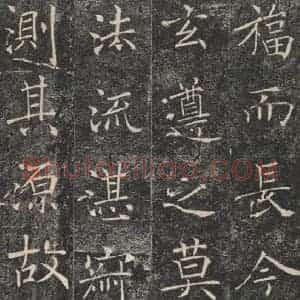 福而長今
玄遵之莫
法流湛寂
測其源故
Shufaziliao.com